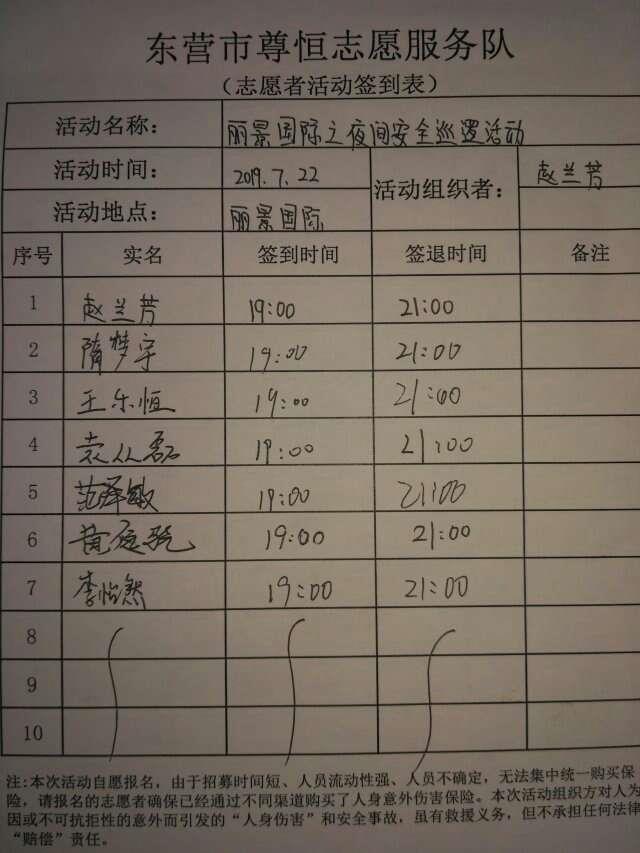 东营市尊恒志愿服务队
（志愿者活动签到表）
活动名称： 丽景国际之夜间安全巡逻活动
活动时间： 2019.7.22 活动组织者： 赵兰芳
活动地点： 丽景国际
序号 实名 签到时间 签退时间 备注
1 赵兰芳 19:00 21:00
2 隋梦宇 19:00 21:00
3 王乐恒 19:00 21:00
4 袁从磊 19:00 21:00
5 范泽敏 19:00 21:00
6 19:00 21:00
7 李怡然 19:00 21:00
8
9
10
注:本次活动自愿报名，由于招募时间短、人员流动性强、人员不确定，无法集中统一购买保
险，请报名的志愿者确保已经通过不同渠道购买了人身意外伤害保险。本次活动组织方对人为
因或不可抗拒性的意外而引发的“人身伤害”和安全事故，虽有救援义务，但不承担任何法律
“赔偿”责任。